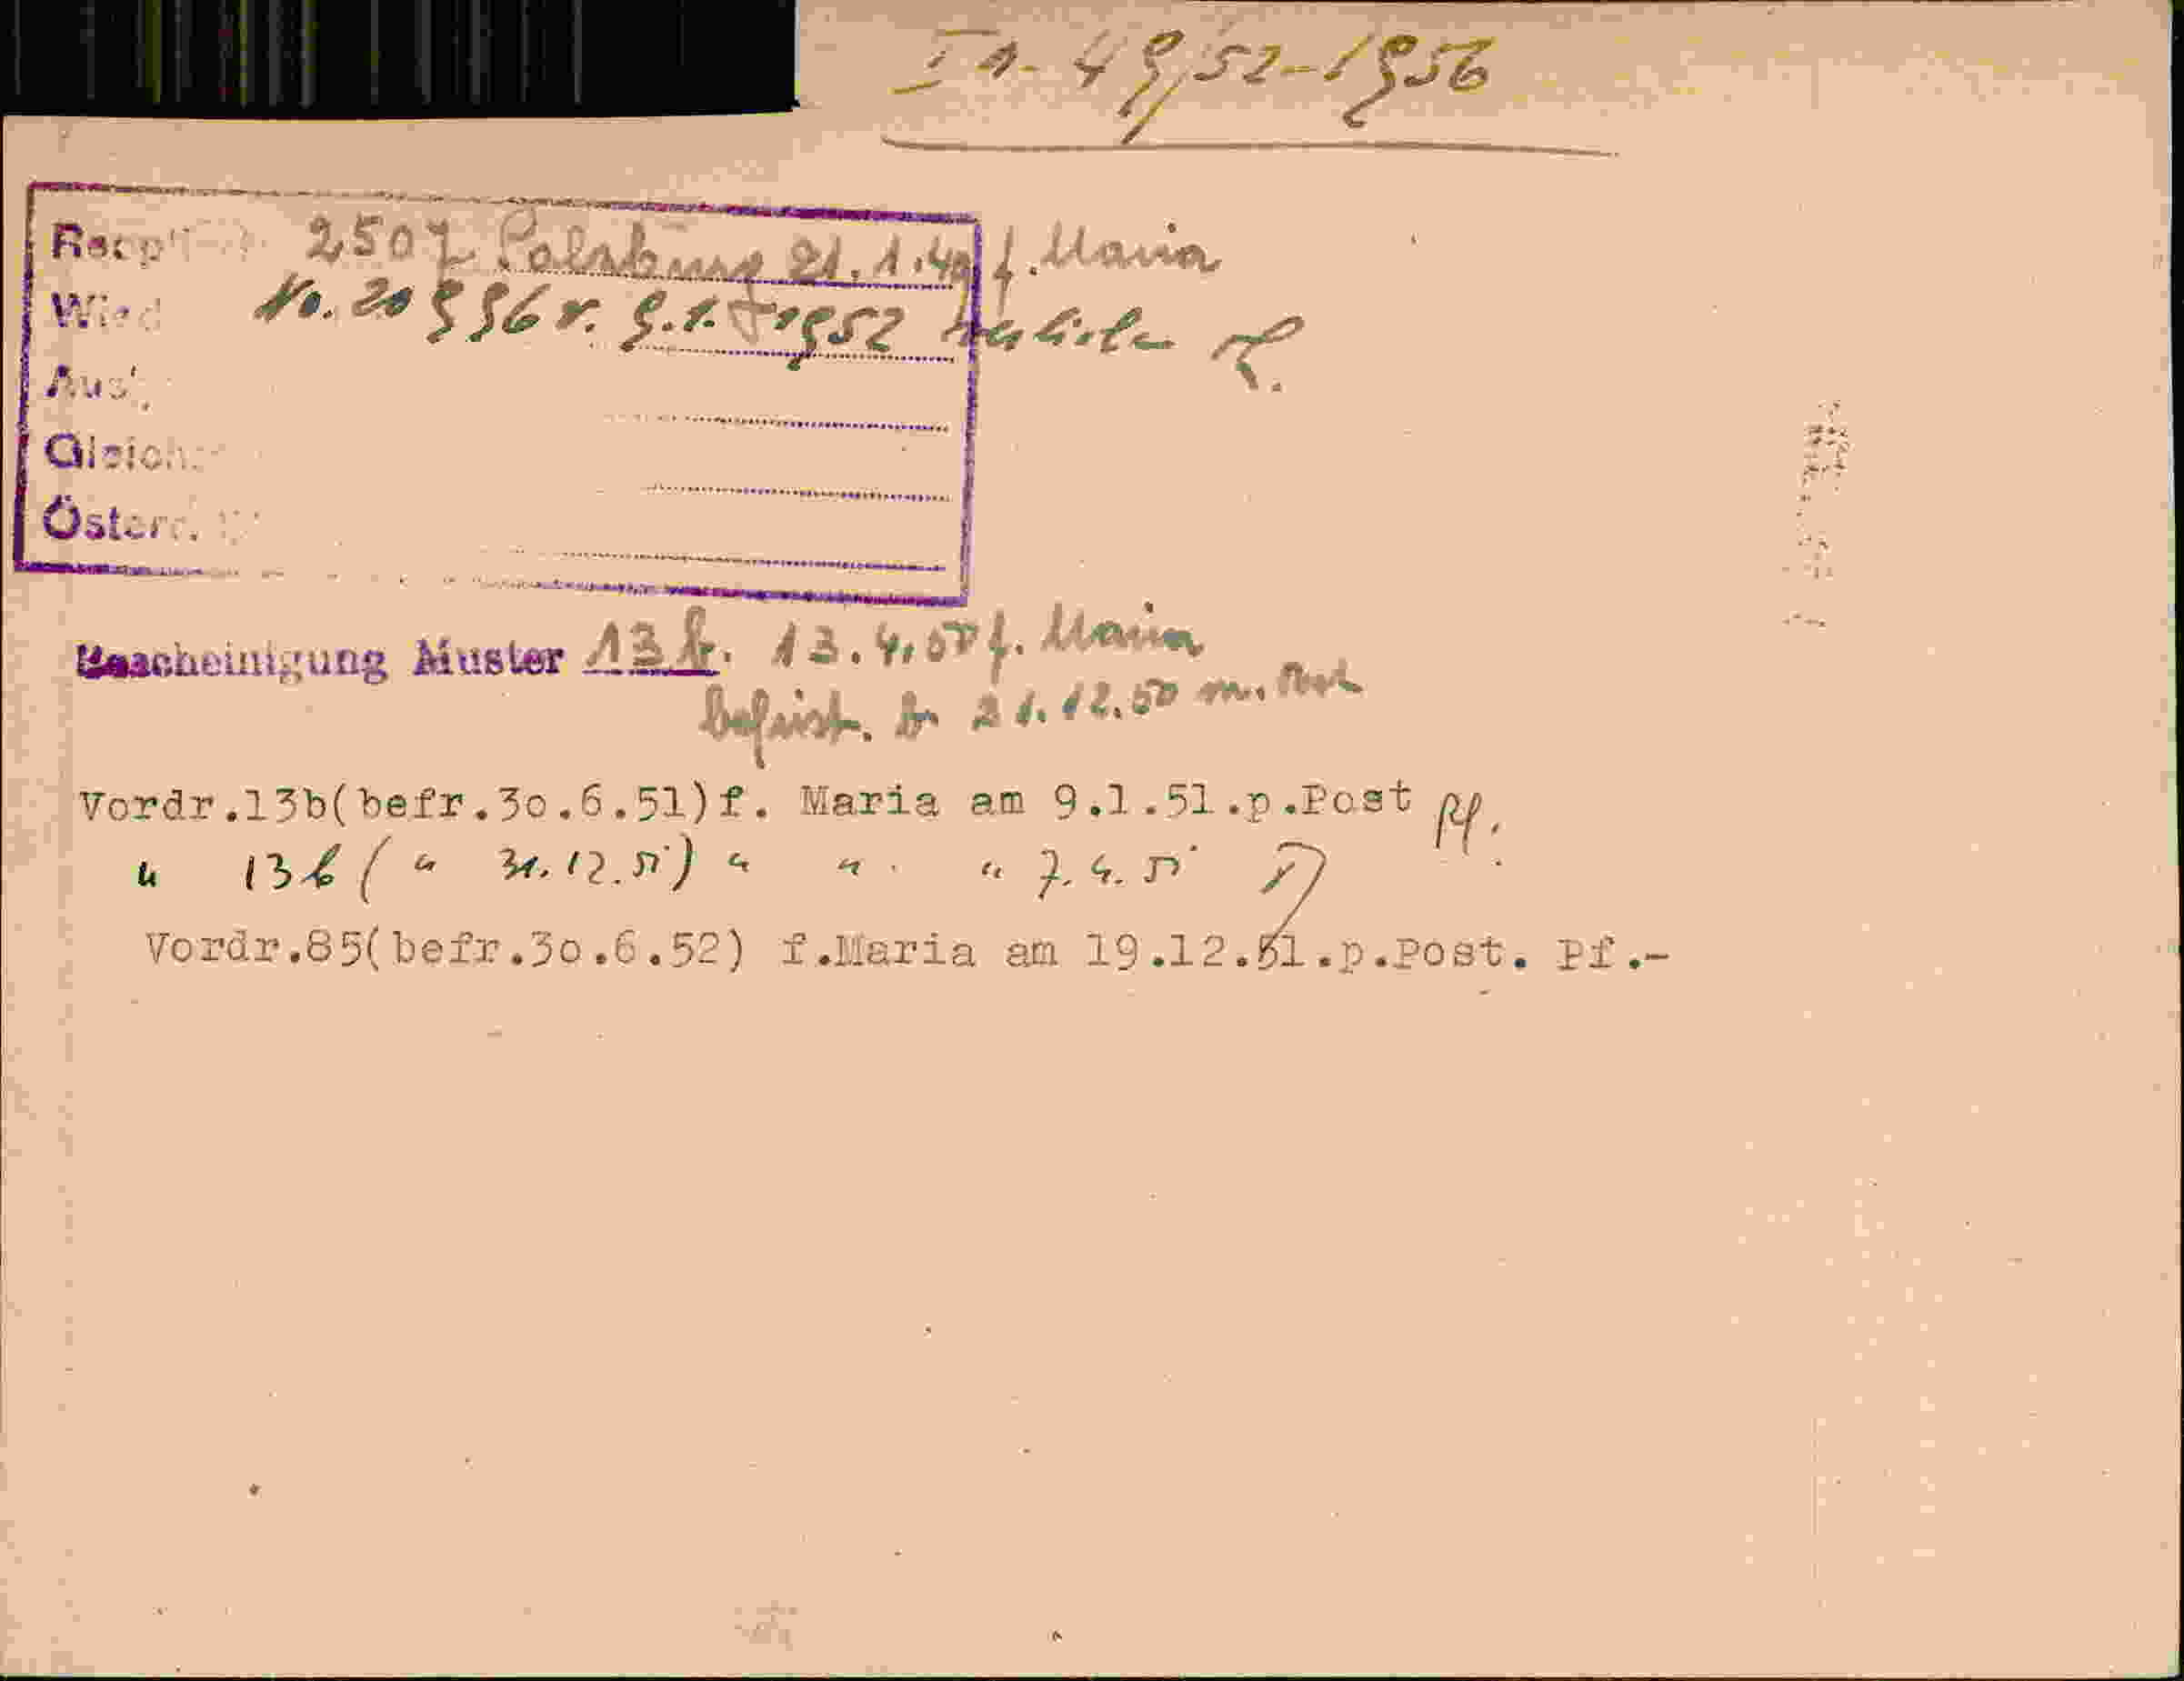 I a - 49/52-1956
2507 Salzburg 21.1.49 f. Maria
Wied No. 20996 v. 9.1.1952
Aus
Gleich
Österr.
Bescheinigung Muster 13 b. 13.4.50 f. Maria
befrist. b. 31.12.50
Vordr.13b(befr.3o.6.51)f. Maria am 9.1.51.p.Post Pf.
" 13b ( " 31.12.51) " " . " 7.4.51
Vordr.85(befr.3o.6.52) f.Maria am 19.12.51.p.Post. Pf.-